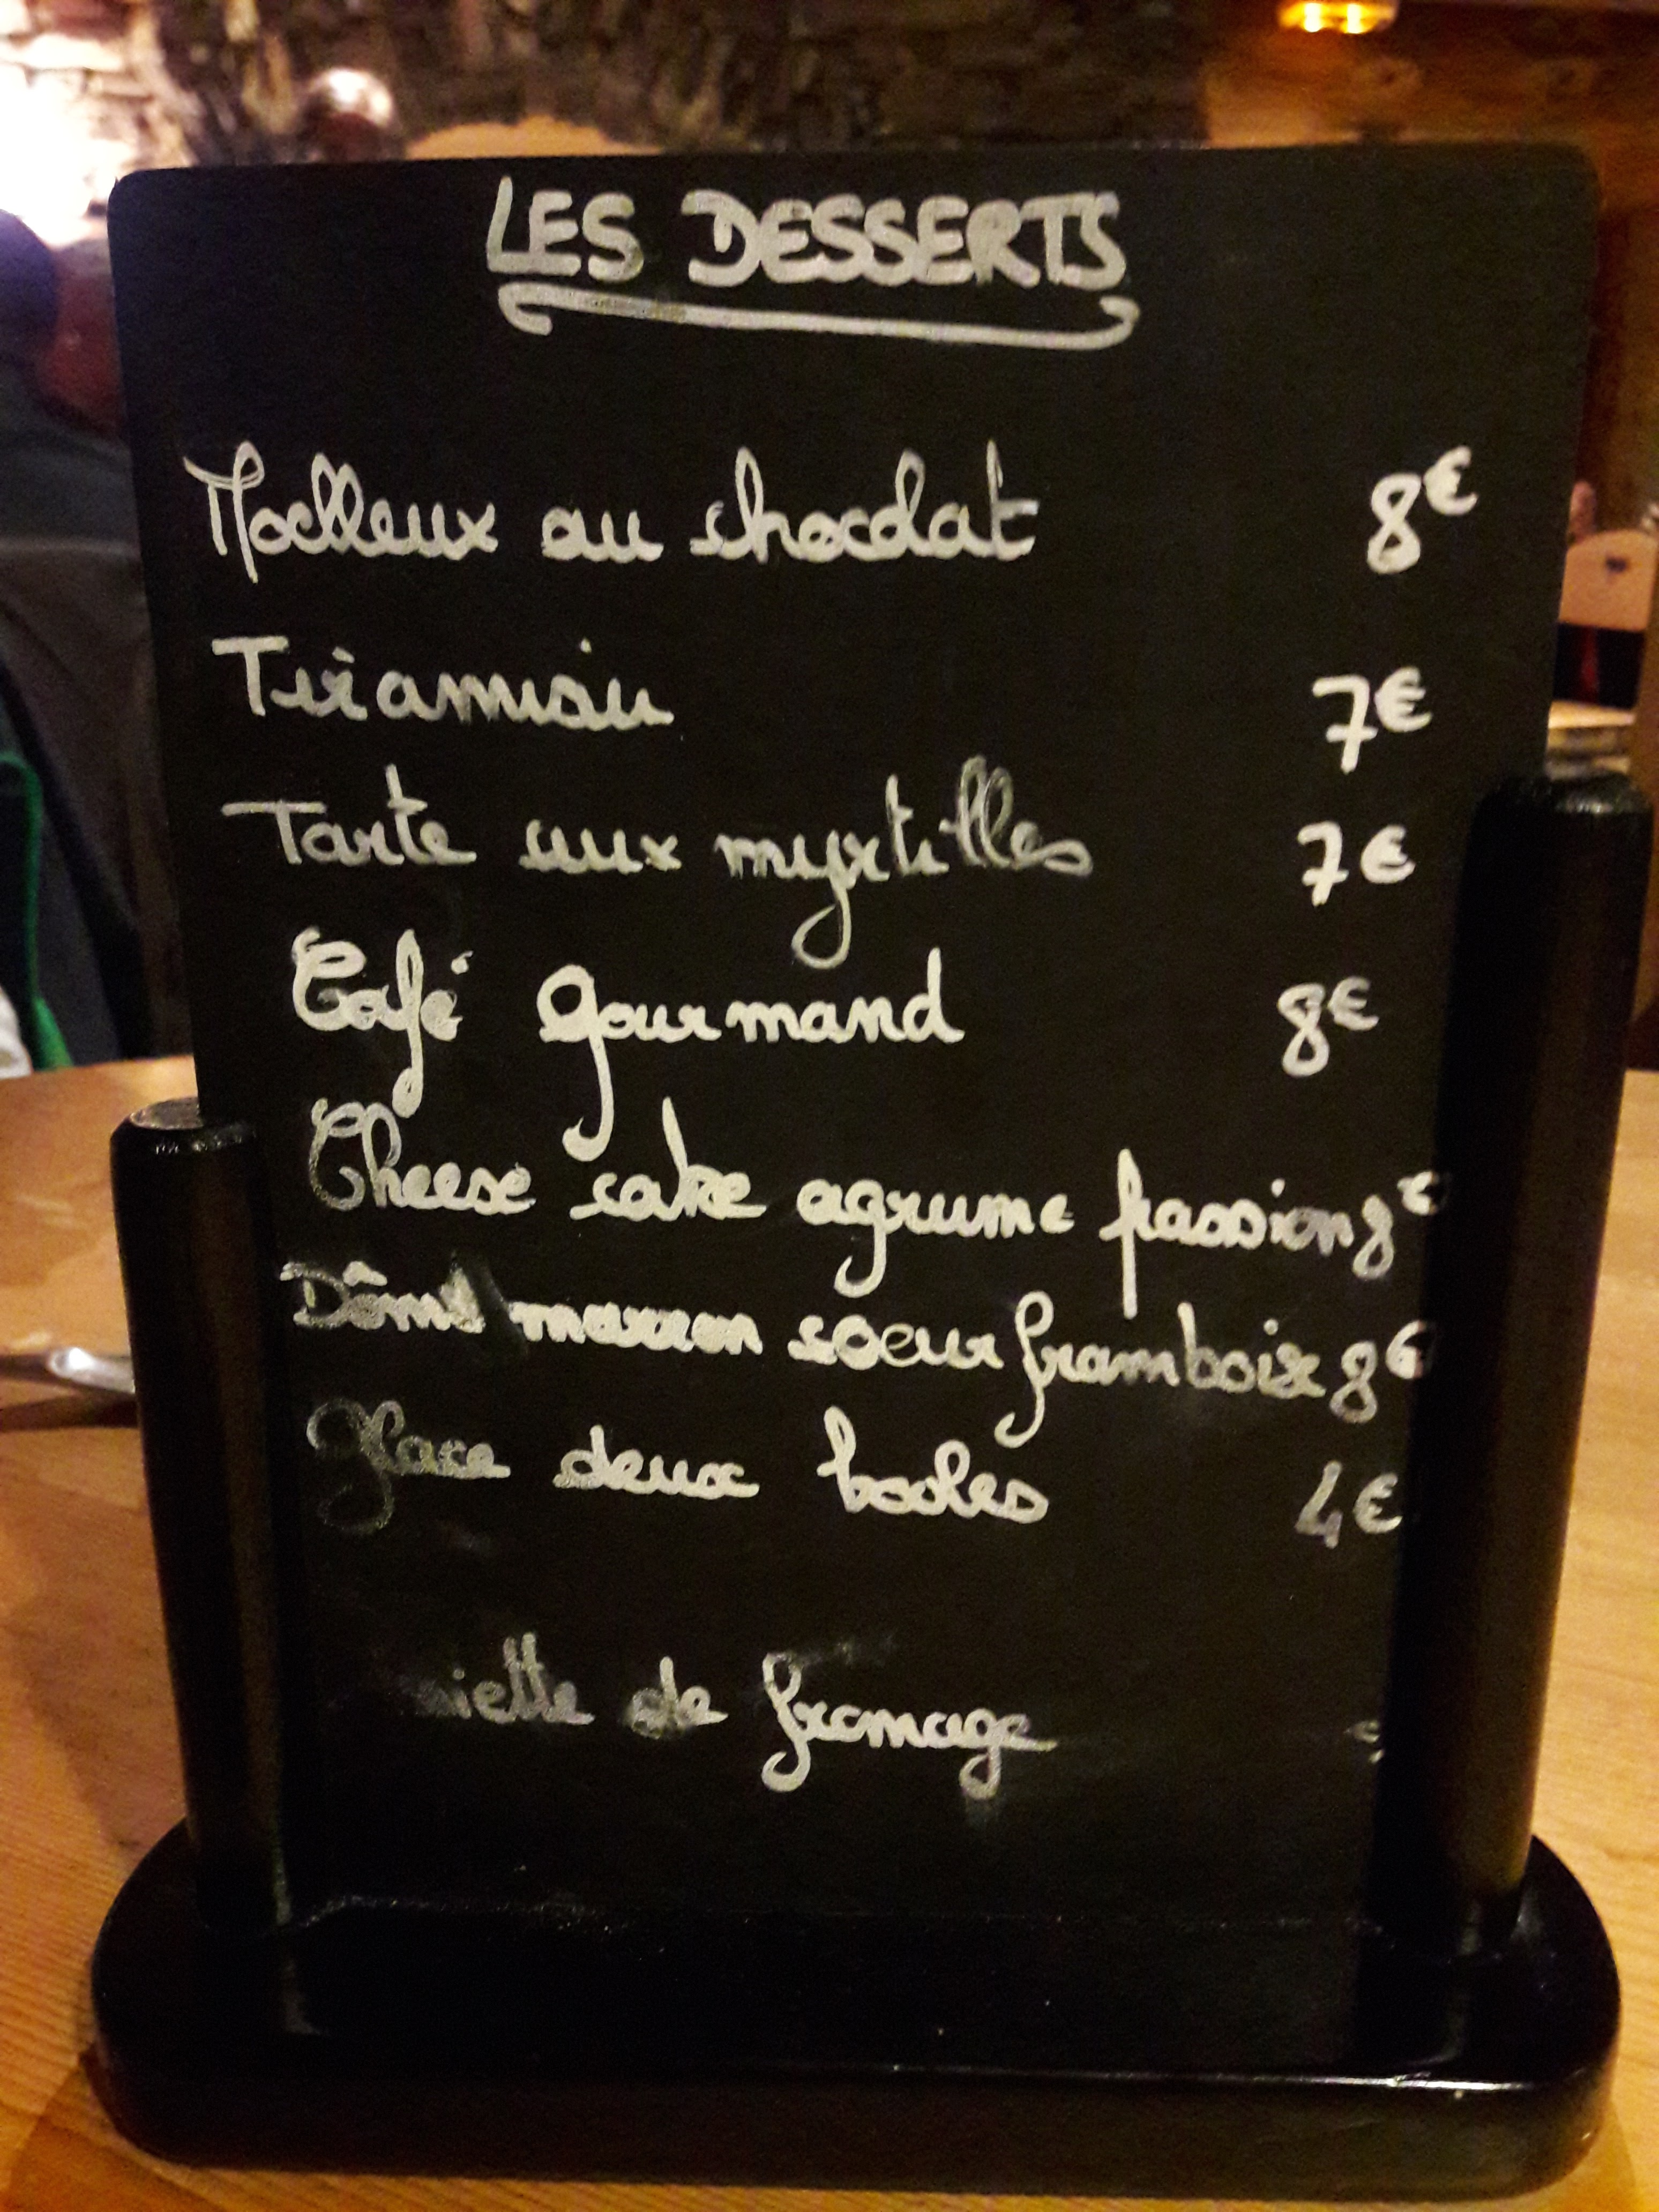 LES DESSERTS
Moelleux au chocolat 8€
Tiramisu 7€
Tarte aux myrtilles 7€
Café gourmand 8€
Cheese cake agrume passion 8€
Dôme marron coeur framboise 8€
Glace deux boules 4€
de fromage